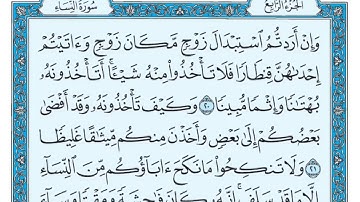 الجزء الرابع سورة النساء
وَإِنْ أَرَدتُّمُ ٱسْتِبْدَالَ زَوْجٍ مَّكَانَ زَوْجٍ وَءَاتَيْتُمْ
إِحْدَىٰهُنَّ قِنطَارًا فَلَا تَأْخُذُوا۟ مِنْهُ شَيْـًٔا ۚ أَتَأْخُذُونَهُۥ
بُهْتَـٰنًا وَإِثْمًا مُّبِينًا ٢٠ وَكَيْفَ تَأْخُذُونَهُۥ وَقَدْ أَفْضَىٰ
بَعْضُكُمْ إِلَىٰ بَعْضٍ وَأَخَذْنَ مِنكُم مِّيثَـٰقًا غَلِيظًا
٢١ وَلَا تَنكِحُوا۟ مَا نَكَحَ ءَابَآؤُكُم مِّنَ ٱلنِّسَآءِ
إِلَّا مَا قَدْ سَلَفَ ۚ إِنَّهُۥ كَانَ فَـٰحِشَةً وَمَقْتًا وَسَآءَ